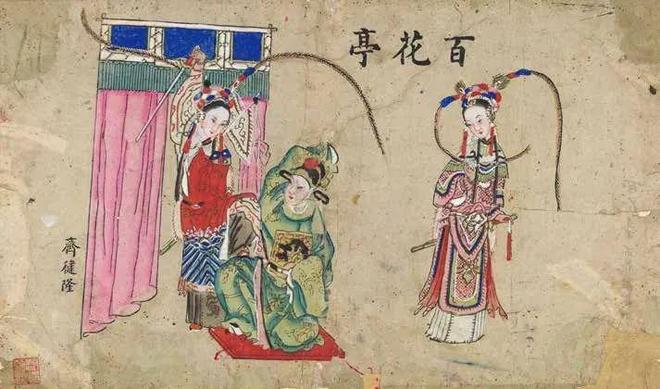 百花亭
齊健隆